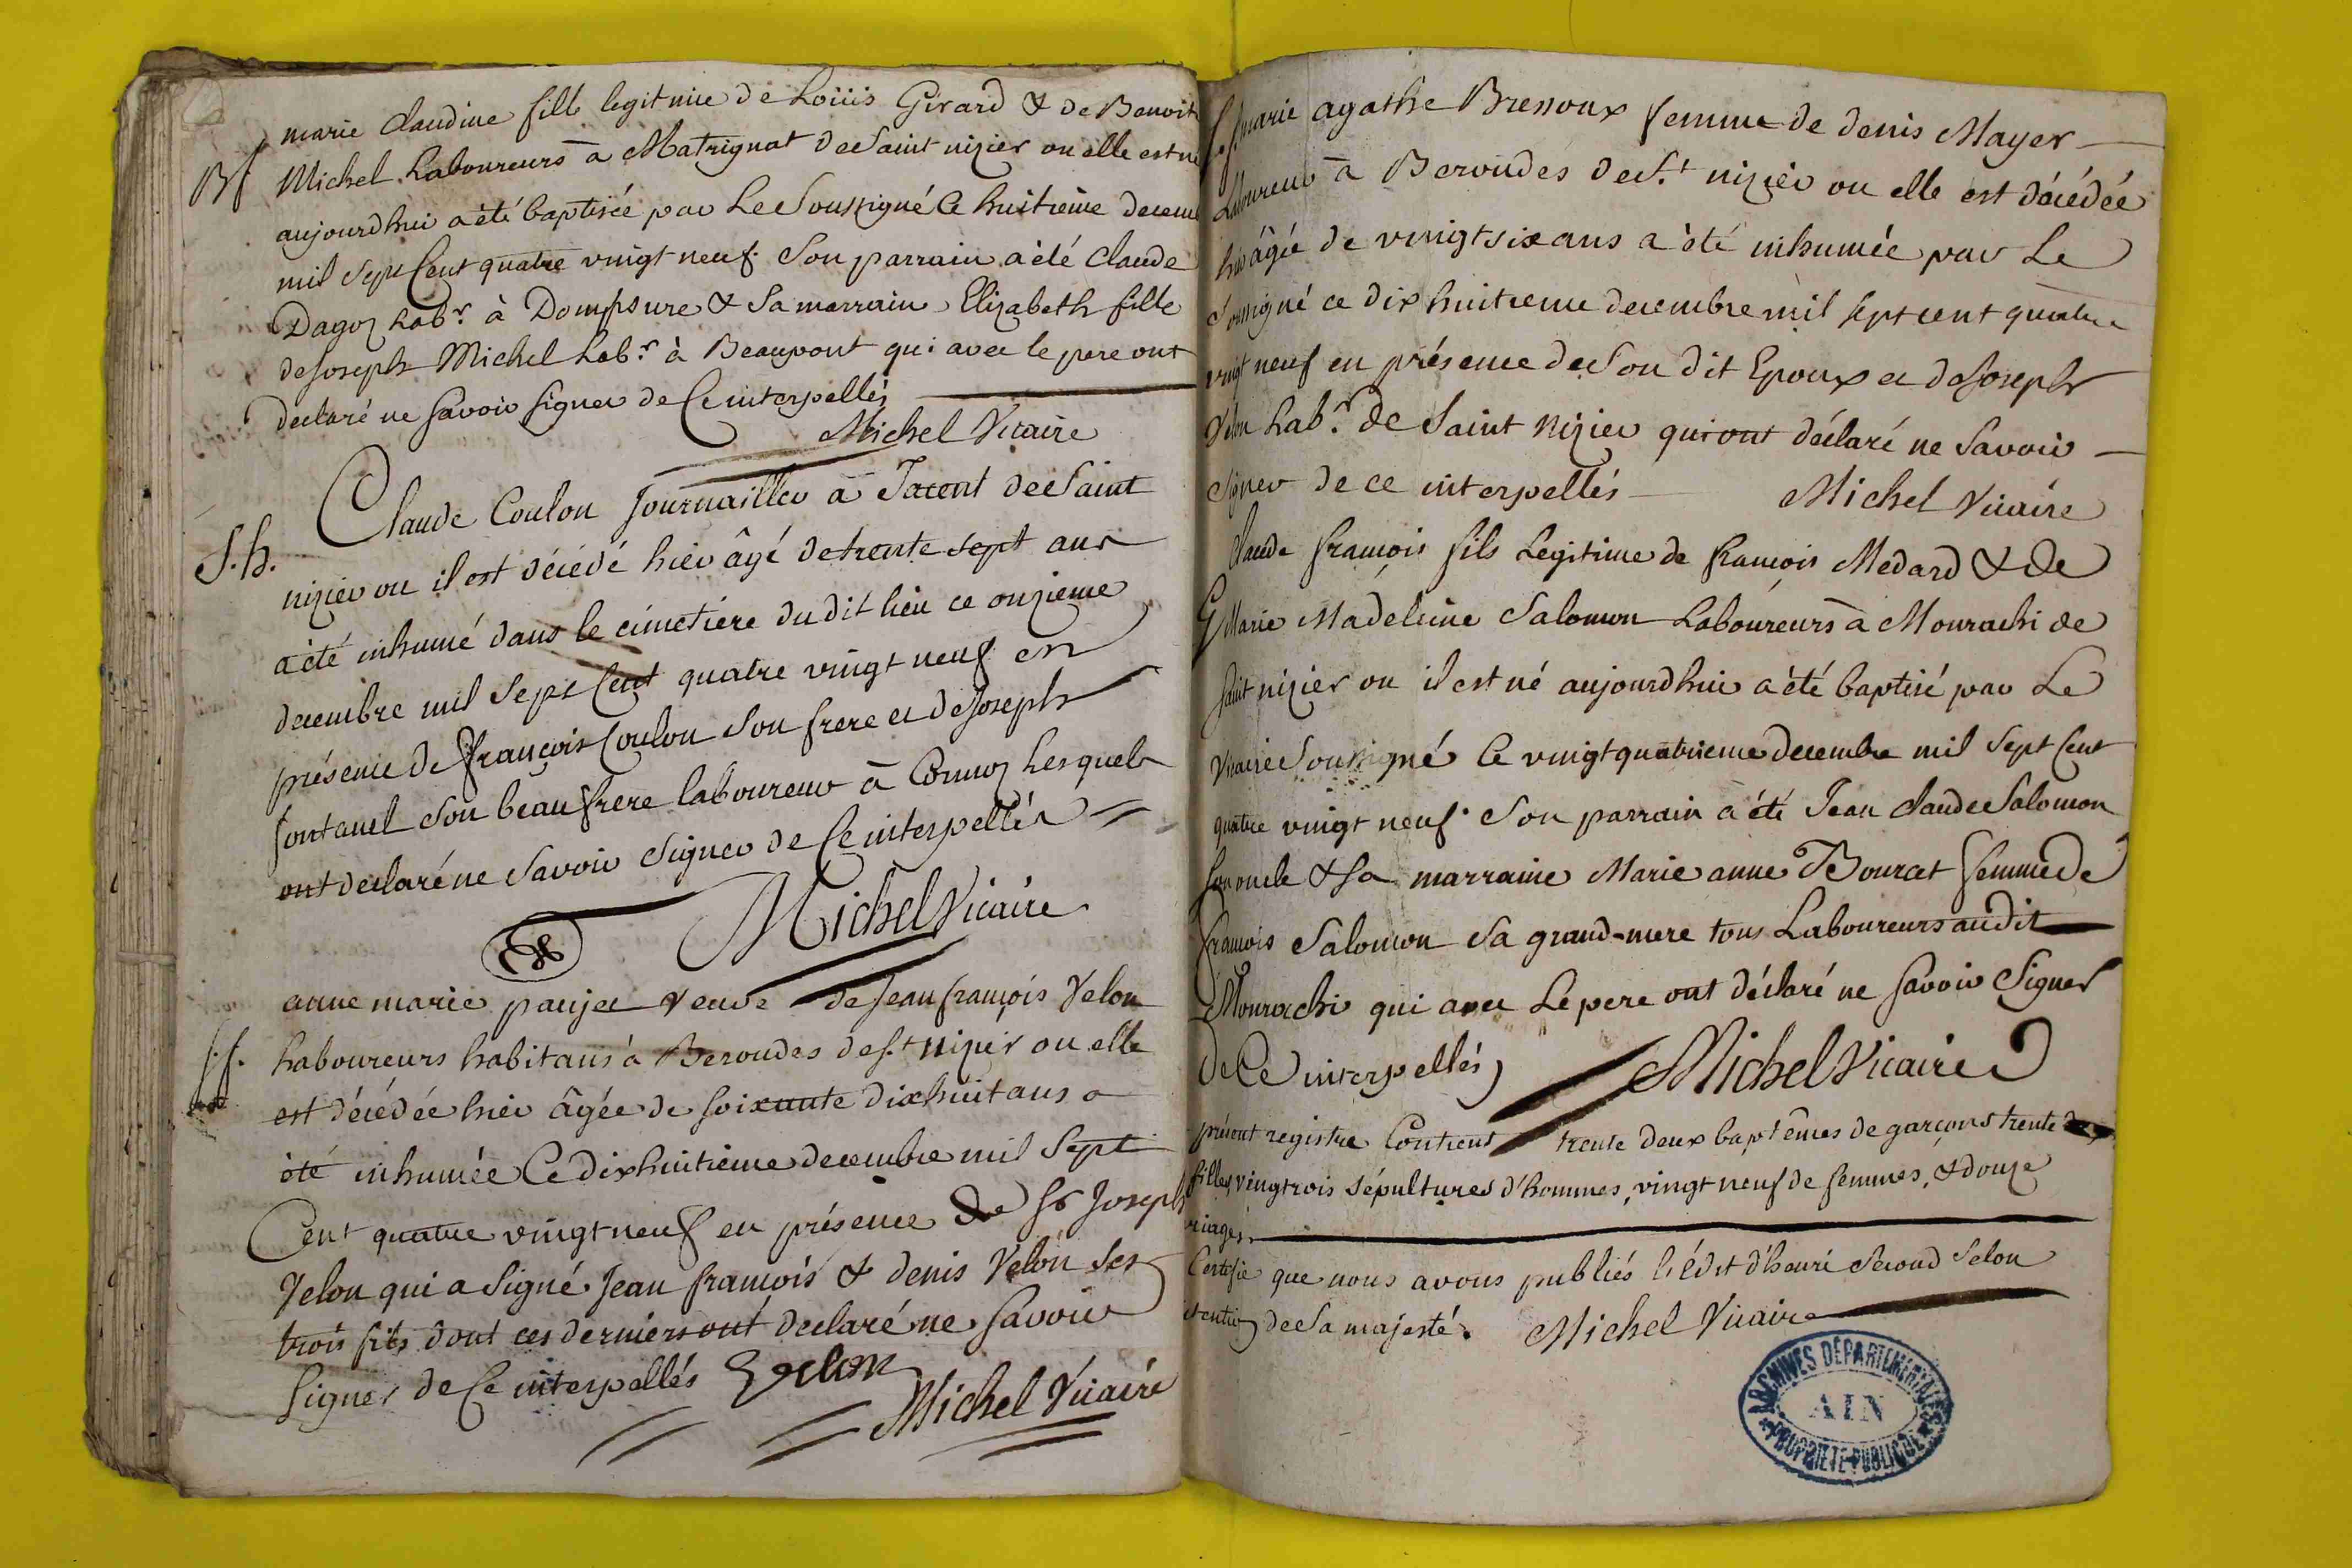 marie Claudine fille legitime de Loüis Girard & de Benoit
Bf Michel Laboureurs à Matrignat de Saint nizier ou elle est né
aujourd'hui a été baptisée par Le Soussigné Ce huitieme decem
mil Sept Cent quatre vingt neuf. Son parrain a été Claude
Dagoz Labr. à Dompsure & Sa marraine Elizabeth fille
de Joseph Michel Labr. à Beaupont qui avec le pere ont
declaré ne Savoir Signer de Ce interpellés
Michel Vicaire
Claude Coulon Journaillier à Tacent de Saint
S.h. nizier ou il est décédé hier âgé de trente sept ans
a été inhumé dans le cimetiére du dit lieu ce onzieme
decembre mil Sept Cent quatre vingt neuf en
présence de françois Coulon Son frere et de Joseph
fontanel Son beaufrere laboureur à Cormoz Lesquels
ont declaré ne Savoir Signer de Ce interpellés
Michel Vicaire
anne marie paujet veuve de Jean françois Velon
S.f. Laboureurs habitans à Beroudes de St nizier ou elle
est décédée hier âgée de soixante dix huit ans a
été inhumée Ce dix huitieme decembre mil Sept
Cent quatre vingt neuf en présence de Joseph
Velon qui a Signé Jean françois & denis Velon Ses
trois fils dont ces derniers ont declaré ne Savoir
Signer de Ce interpellés Velon
Michel Vicaire
Sf marie agathe Bressoux femme de denis Mayer
Laboureur à Beroudes de St nizier ou elle est décédée
hier âgée de vingt six ans a été inhumée par Le
Soussigné ce dix huitieme decembre mil Sept cent quatre
vingt neuf en présence de Son dit Epoux et de Joseph
Velon Labr. de Saint Nizier qui ont déclaré ne Savoir
Signer de ce interpellés Michel Vicaire
Claude françois fils Legitime de françois Medard & de
G Marie Madeleine Salomon Laboureurs à Mourachi de
Saint nizier ou il est né aujourdhui a été baptisé par Le
Vicaire Soussigné Ce vingt quatrieme decembre mil Sept Cent
quatre vingt neuf. Son parrain a été Jean Claude Salomon
Son oncle & Sa marraine Marie anne Bourcet femme de
françois Salomon Sa grand-mere tous Laboureurs audit
Mourachi qui avec Le pere ont déclaré ne Savoir Signer
de Ce interpellés Michel Vicaire
présent registre Contient trente deux baptêmes de garçons trente
filles, vingtrois sépultures d'hommes, vingt neuf de femmes, & douze
riages.
Certifie que nous avons publiés l'édit d'henri Second Selon
tention de Sa majesté. Michel Vicaire
ARCHIVES DÉPARTEMENTALES
AIN
PROPRIÉTÉ PUBLIQUE